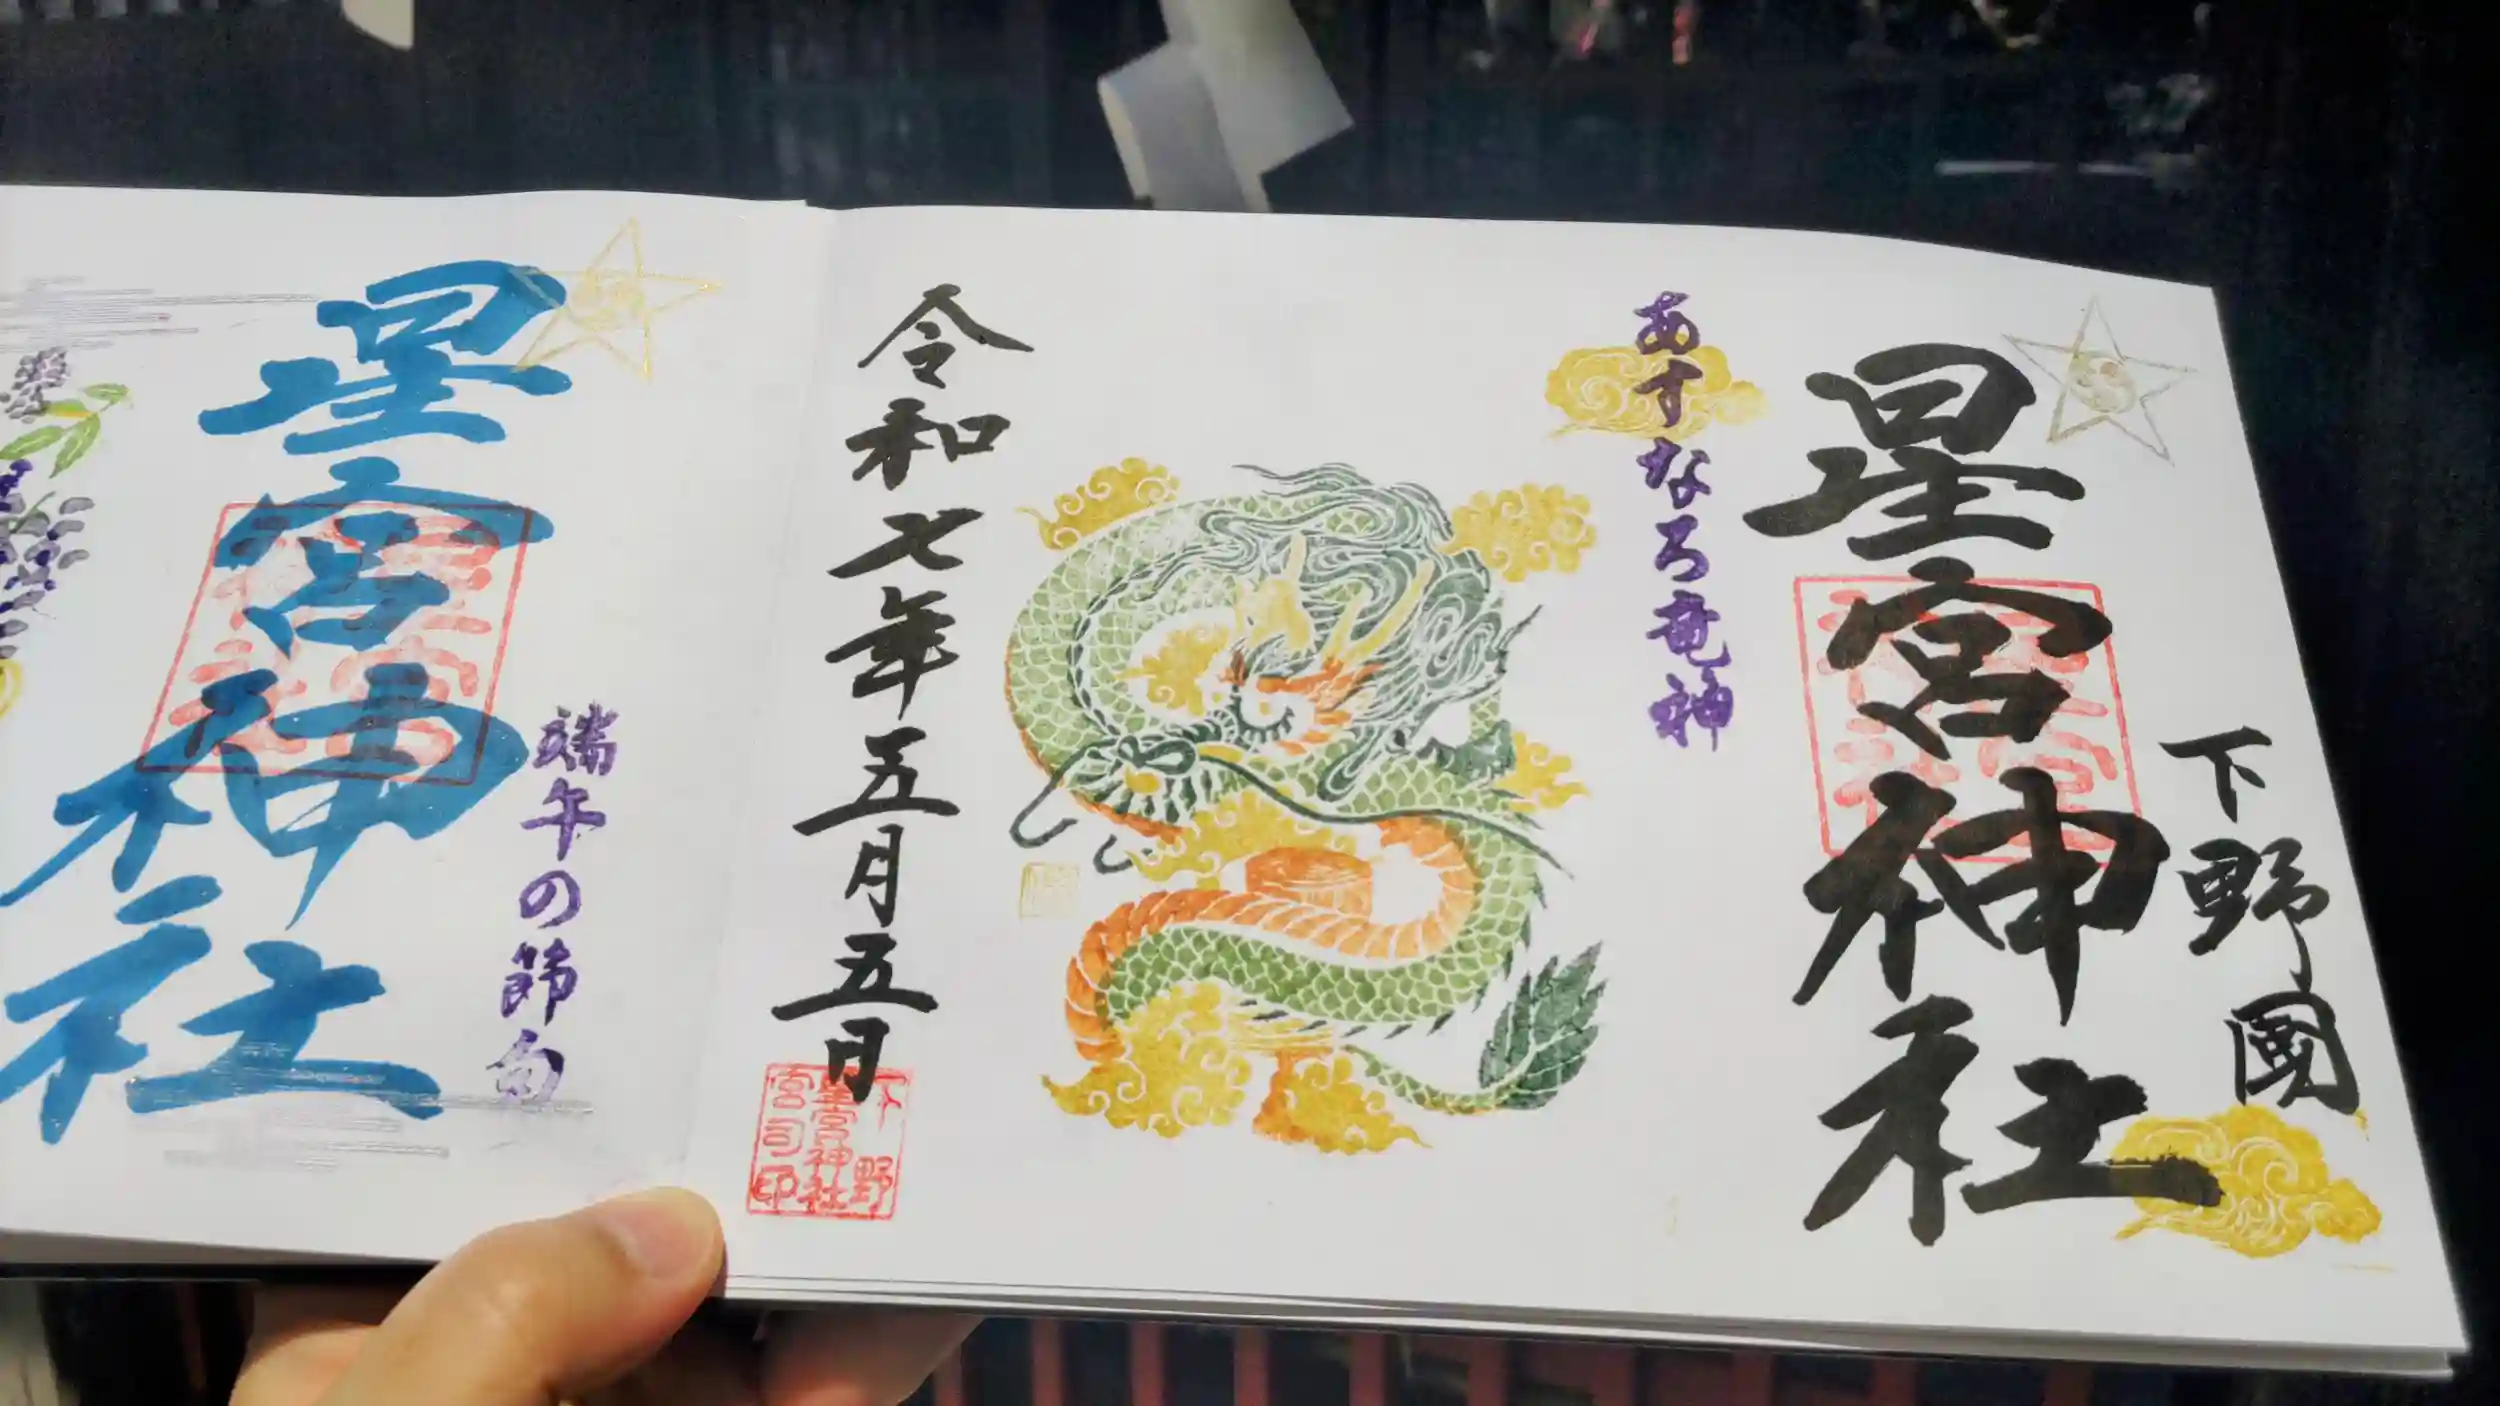 下野國
星宮神社
あすなろ竜神
令和七年五月五日
下野
星宮神社
宮司印
端午の節句
星宮神社